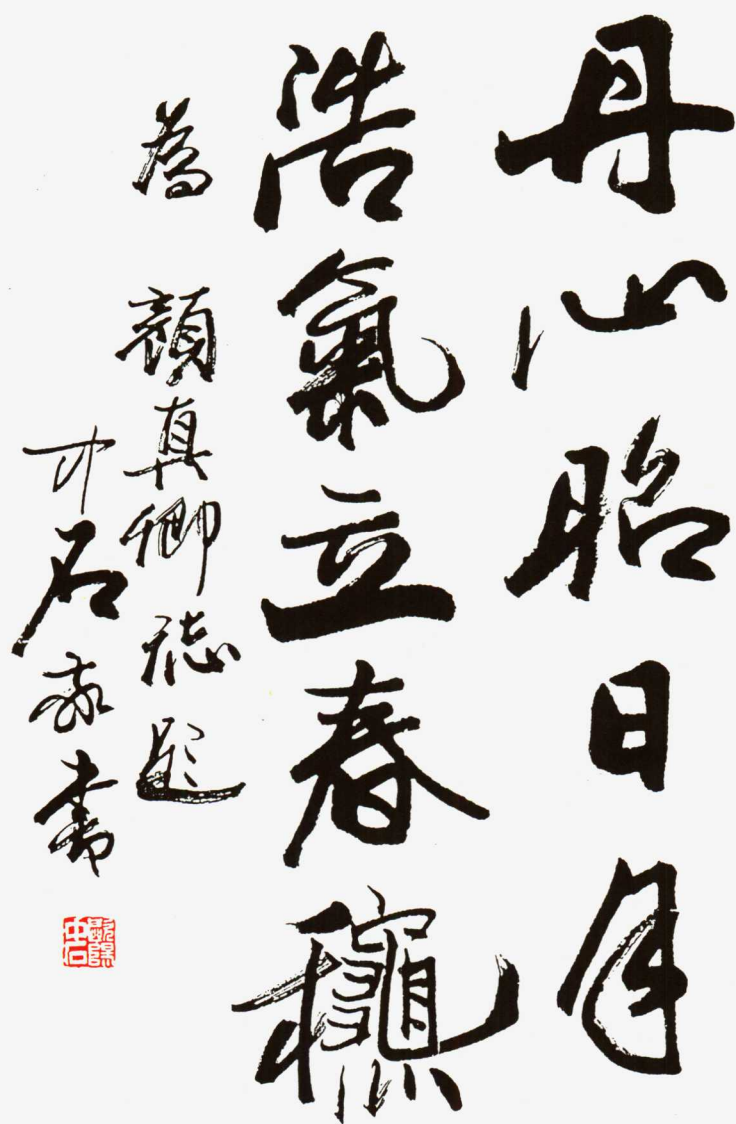 丹心昭日月
浩氣立春龝
為 顔真卿誌題
中石敬書
歐陽中石